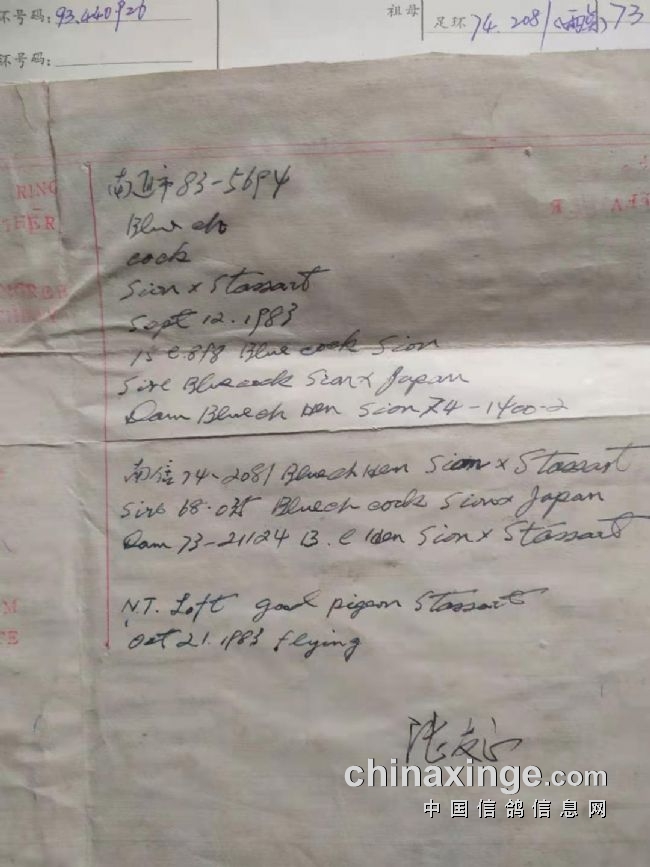 环号码: 93.440926
祖母
足环 74.2081 73
环号码:
RING
南通市 83-5694
Blue ch
cock
Sion x Stassart
Sept 12.1983
Blue cock Sion
Sire Blue cock Sion x Japan
Dam Blue ch Hen Sion 74-1400-2
南信 74-2081 Blue ch Hen Sion x Stassart
Sire 68. Blue ch cock Sion x Japan
Dam 73-21124 B.C Hen Sion x Stassart
N.T. Loft good pigeon Stassart
Oct 21.1983 flying
chinaxinge.com
中国信鸽信息网